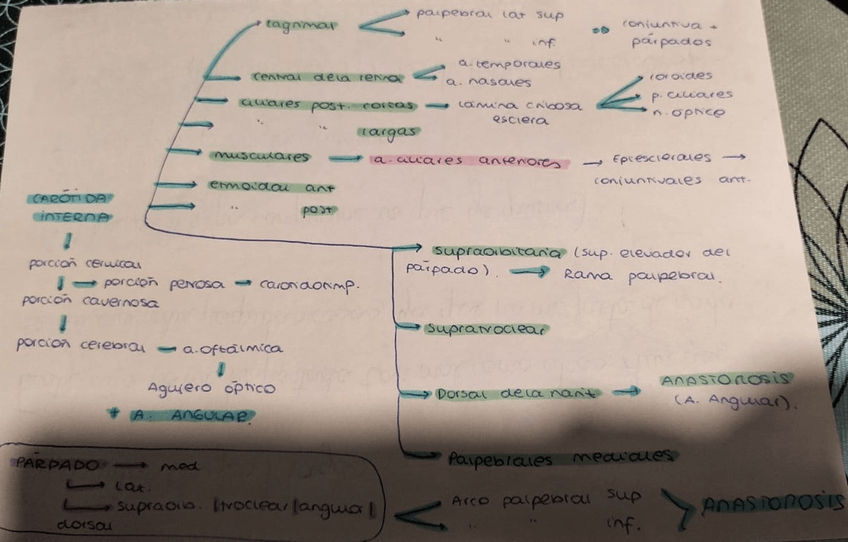 lagrimal
palpebral lat sup
" " inf
conjuntiva +
párpados
central de la retina
a. temporales
a. nasales
ciliares post. cortas
lámina cribosa
esclera
coroides
p. ciliares
n. optico
" " largas
musculares
a. ciliares anteriores
Epiesclerales
conjuntivales ant.
etmoidal ant
" post
CARÓTIDA
INTERNA
porción cervical
porción petrosa
porción cavernosa
porción cerebral
a. oftálmica
Agujero óptico
+ A. ANGULAR.
supraorbitaria (sup. elevador del
párpado).
Rama palpebral.
supratroclear
Dorsal de la nariz
ANASTOROSIS
(A. Angular).
Palpebrales mediales
Arco palpebral sup
" " inf.
ANASTOROSIS
PÁRPADO
med
lat.
supraorb. |troclear|angular|
dorsal